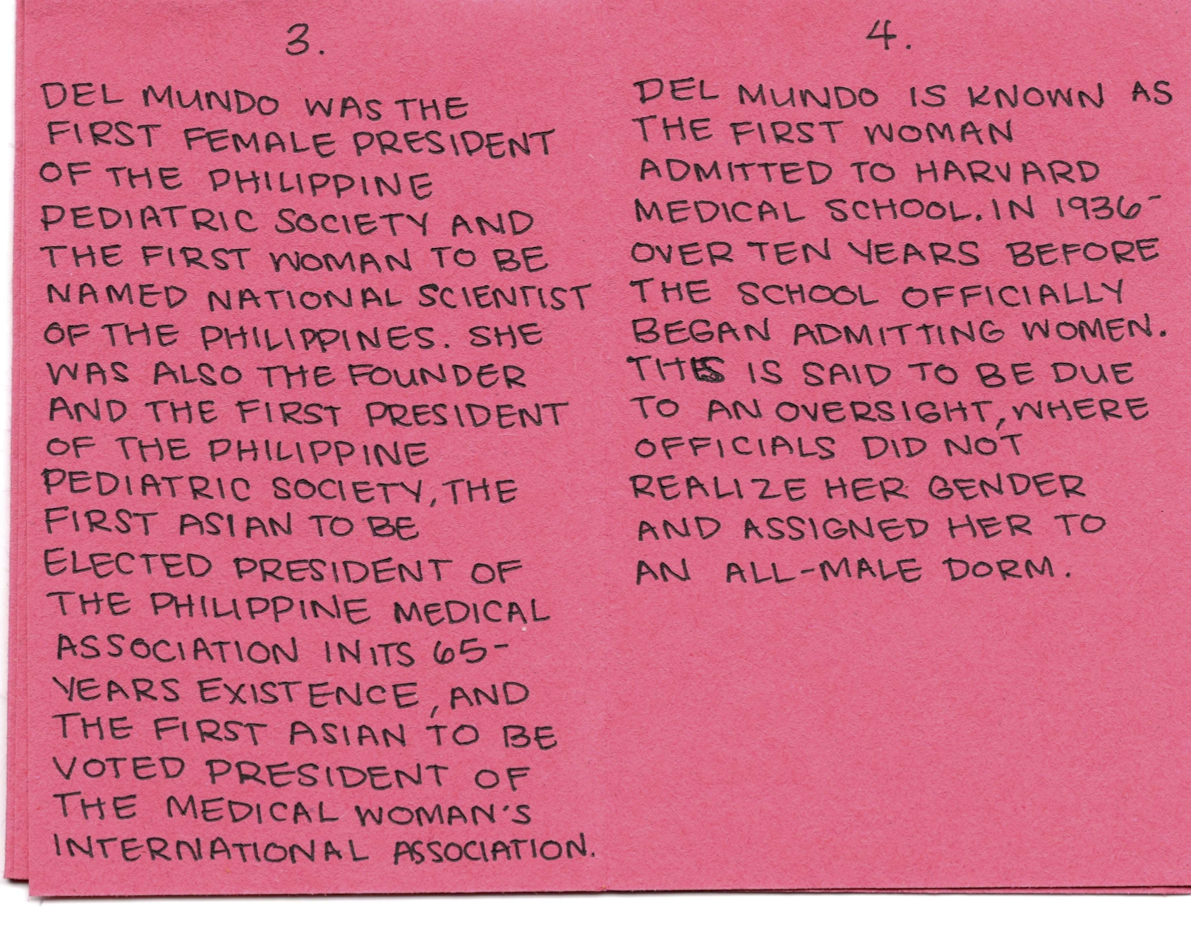 3.
DEL MUNDO WAS THE
FIRST FEMALE PRESIDENT
OF THE PHILIPPINE
PEDIATRIC SOCIETY AND
THE FIRST WOMAN TO BE
NAMED NATIONAL SCIENTIST
OF THE PHILIPPINES. SHE
WAS ALSO THE FOUNDER
AND THE FIRST PRESIDENT
OF THE PHILIPPINE
PEDIATRIC SOCIETY, THE
FIRST ASIAN TO BE
ELECTED PRESIDENT OF
THE PHILIPPINE MEDICAL
ASSOCIATION IN ITS 65-
YEARS EXISTENCE, AND
THE FIRST ASIAN TO BE
VOTED PRESIDENT OF
THE MEDICAL WOMAN'S
INTERNATIONAL ASSOCIATION.
4.
DEL MUNDO IS KNOWN AS
THE FIRST WOMAN
ADMITTED TO HARVARD
MEDICAL SCHOOL. IN 1936-
OVER TEN YEARS BEFORE
THE SCHOOL OFFICIALLY
BEGAN ADMITTING WOMEN.
THIS IS SAID TO BE DUE
TO AN OVERSIGHT, WHERE
OFFICIALS DID NOT
REALIZE HER GENDER
AND ASSIGNED HER TO
AN ALL-MALE DORM.